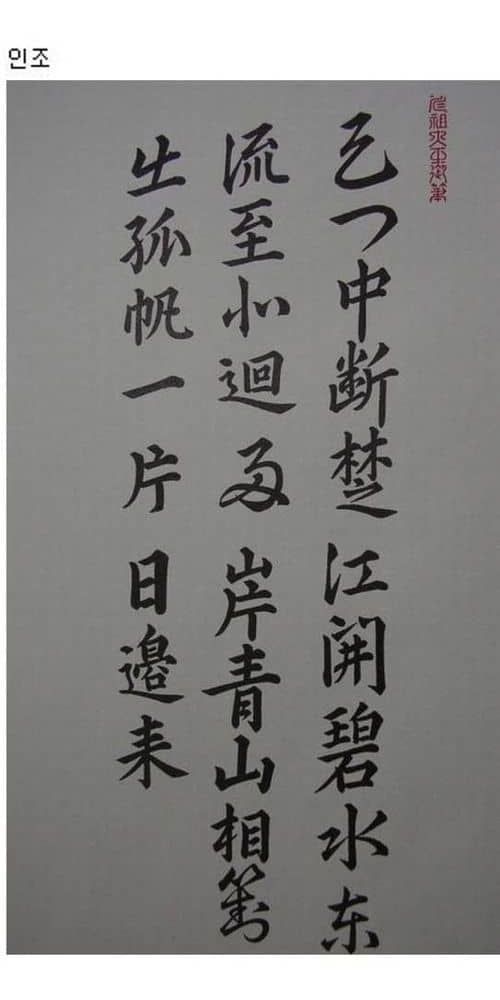 인조
仁祖大王御筆
天门中断楚江開碧水东
流至此迴两岸青山相對
出孤帆一片日邊来